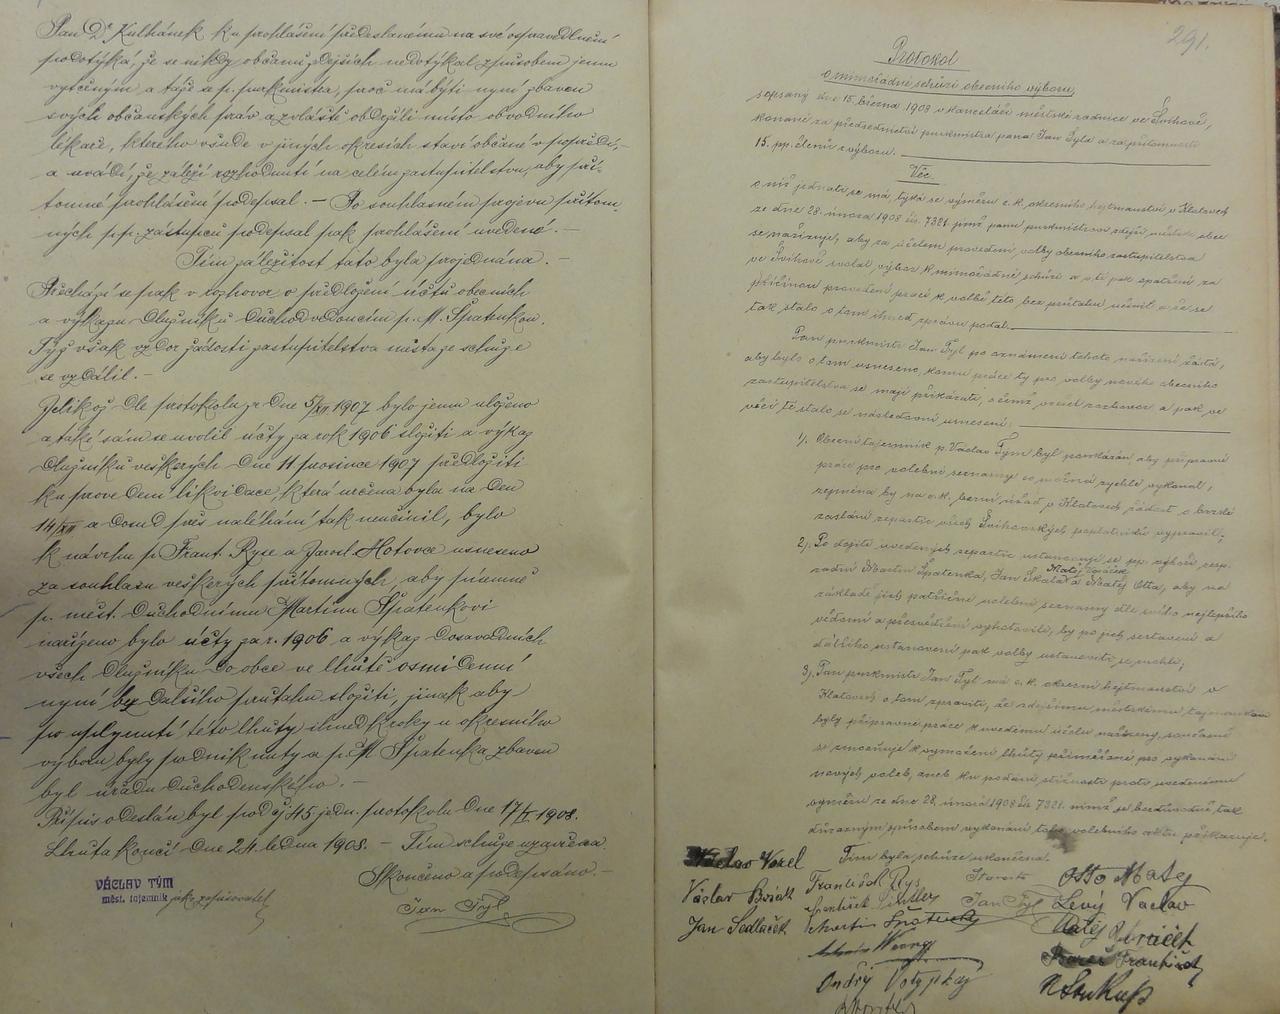 Pan Dr Kulhánek ku prohlášení předeslanému na své ospravedlnění
podotýká, že se nikdy občanů zdejších nedotýkal způsobem jemu
vytčeným a táže se p. purkmistra, proč má býti nyní zbaven
svých občanských práv a zvláště obdrželi místo obvodního
lékaře, kterého všude v jiných okresích staví občané v popředí,-
a uvádí, že záleží rozhodnutí na celém zastupitelstvu, aby pří-
tomné prohlášení podepsal. — Po souhlasném projevu přítom-
ných p.p. zástupců podepsal pak prohlášení uvedené. —
Tím záležitost tato byla projednána. —
Přechází se pak v rozhovor o předložení účtů obecních
a výkazu dlužníků důchodvedoucím p. M. Špatenkou.
Týž však vzdor žádosti zastupitelstva místa ze schůze
se vzdálil. —
Jelikož dle protokolu ze dne 5/XII 1907 bylo jemu uloženo
a také sám se uvolil účty za rok 1906 složiti a výkaz
dlužníků veškerých dne 11 prosince 1907 předložiti
ku provedení likvidace, která určena byla na den
14/XII a dosud přes naléhání tak neučinil, bylo
k návrhu p. Frant. Ryse a Jarosl. Hotovce usneseno
za souhlasu veškerých přítomných, aby písemně
p. měst. důchodnímu Martinu Špatenkovi
nařízeno bylo účty za r. 1906 a výkaz dosavadních
všech dlužníků do obce ve lhůtě osmidenní
nyní bez dalšího průtahu složiti, jinak aby
po uplynutí této lhůty ihned kroky u okresního
výboru byly podniknuty a p. M. Špatenka zbaven
byl úřadu důchodenského. —
Přípis odeslán byl pod čj 45 jedn. protokolu dne 17/I 1908.
Lhůta končí dne 24. ledna 1908. — Tím schůze uzavřena.
Skončeno a podepsáno. —
VÁCLAV TÝM
měst. tajemník
jako zapisovatel
Jan Týl
291.
Protokol
o mimořádné schůzi obecního výboru,
sepsaný dne 15. března 1908 v kanceláři městské radnice ve Švihově,
konané za předsednictví purkmistra pana Jan Týla a za přítomnosti
15. pp. členů výboru.
Věc
o níž jednati se má, týká se výměru c. k. okresního hejtmanství v Klatovech
ze dne 28. února 1908 čís. 7321. jímž panu purkmistrovi zdejší městské obce
se nařizuje, aby za účelem provedení volby obecního zastupitelstva
ve Švihově svolal výbor k mimořádné schůzi a v té pak opatření za
příčinou provedení prací k volbě této bez průtahu učinil a že se
tak stalo o tom ihned zprávu podal.
Pan purkmistr Jan Týl po oznámení tohoto nařízení žádá,
aby bylo o tom usneseno, komu práce ty pro volby nového obecního
zastupitelstva se mají přikázati, o čemž vzešel rozhovor a pak ve
věci té stalo se následovní usnesení:
1). Obecní tajemník p. Václav Tým byl poukázán, aby přípravné
práce pro volební seznamy co možná rychle vykonal,
zejména by na c. k. berní úřad v Klatovech žádost o brzké
zaslání repartic všech Švihovských poplatníků vypravil;
2). Po dojití uvedených repartic ustanovují se pp. výboři resp.
radní Martin Špatenka, Jan Skala a Matěj Otta, aby na
základě jich patřičné volební seznamy dle svého nejlepšího
vědomí a přesvědčení vyhotovili, by po jich sestavení a
dalšího ustanovení pak volby ustanoviti se mohli;
3). Pan purkmistr Jan Týl má c. k. okresní hejtmanství v
Klatovech o tom zpraviti, že zdejšímu městskému tajemníkovi
byly přípravné práce k uvedenému účelu nařízeny, současně
se zmocňuje k vymožení lhůty přiměřené pro vykonání
nových voleb, aneb ku podání stížnosti proti uvedenému
výměru ze dne 28. února 1908 čís 7321. nímž se bezdůvodně tak
důrazným způsobem vykonání toho volebního aktu přikazuje.
Tím byla schůze ukončena.
Václav Vozel
František Rys
Starosta
Otto Matěj
Jan Týl
Levý Václav
Jan Sedláček
Martin Špatenka
Ondřej Votypka
František